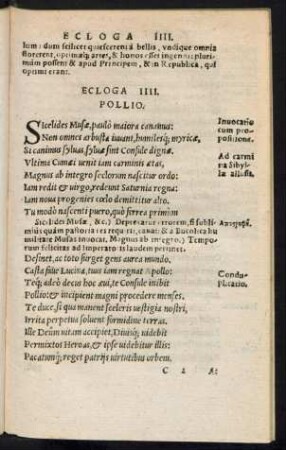 ECLOGA IIII.
lum: dum scilicet quiescerent à bellis, vndique omnia
florerent, optimæq; artes, & honos esset ingeniis: pluri
mùm possent & apud Principem, & in Republica, qui
optimi erant.
ECLOGA IIII.
POLLIO.
SIcelides Musæ, paulò maiora canamus:
Non omnes arbusta iuuant, humilesq; myricæ,
Si canimus syluas, syluæ sint Consule dignæ.
Vltima Cumæi uenit iam carminis ætas,
Magnus ab integro seclorum nascitur ordo:
Iam redit & uirgo, redeunt Saturnia regna:
Iam noua progenies cœlo demittitur alto.
Tu modò nascenti puero, quò ferrea primùm
Sicelides Musæ, &c.) Deprecatur errorem, si subli
miùs quàm pastoria res requirit, canat: & à Bucolica hu
militate Musas inuocat. Magnus ab integro.) Tempo
rum felicitas ad Imperatoris laudem pertinet.
Desinet, ac toto surget gens aurea mundo.
Casta faue Lucina, tuus iam regnat Apollo:
Teq; adeò decus hoc æui, te Consule inibit
Pollio: & incipient magni procedere menses.
Te duce, si qua manent sceleris uestigia nostri,
Irrita perpetua soluent formidine terras.
Ille Deûm uitam accipiet, Diuisq; uidebit
Permixtos Heroas, & ipse uidebitur illis:
Pacatumq; reget patrijs uirtutibus orbem.
C 2 At
Inuocatio
cum pro-
positione.
Ad carmi
na Sibyl-
læ allusit.
Condu-
plicatio.